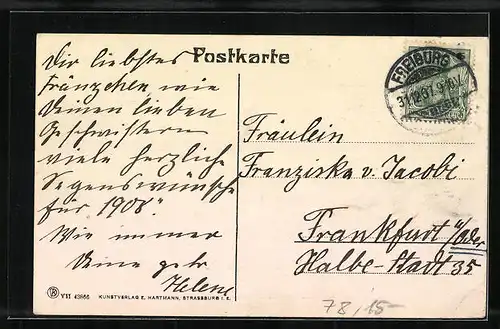 Postkarte
FREIBURG
Dir liebstes
Fränzchen wie
Deinen lieben
Geschwistern
viele herzliche
Segenswünsche
für 1908.
Wie immer
Deine
Helene
Fräulein
Franziska v. Jacobi
Frankfurt a/Oder
Halbe-Stadt 35
VII 43866 KUNSTVERLAG E. HARTMANN, STRASSBURG I. E.
78,15-